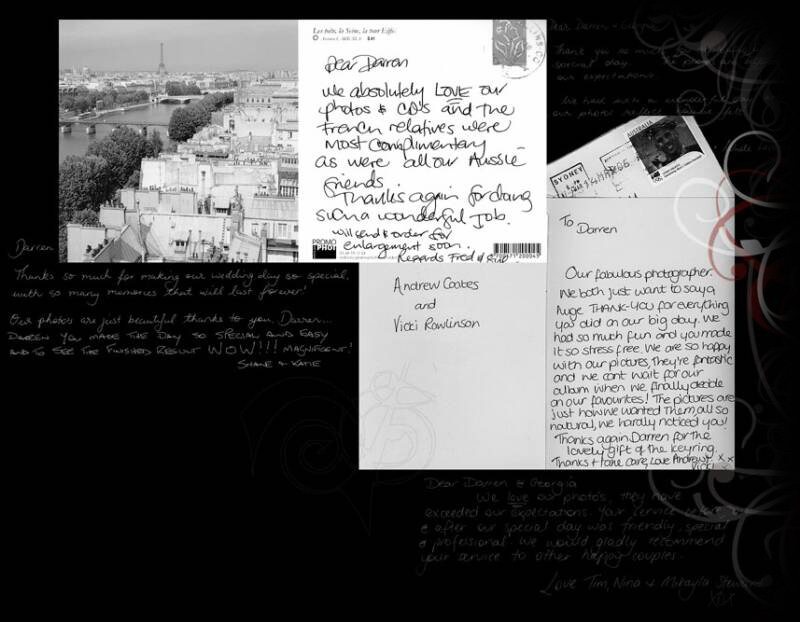 Les toits, la Seine, la tour Eiffel
Dear Darren
we absolutely LOVE our
photos & CD's and the
French relatives were
most complimentary
as were all our Aussie
friends.
Thanks again for doing
such a wonderful job.
will send & order for
enlargement soon.
Regards Fred &
PROMO
PHOT
Dear Darren &
Thank you so much
special day.
our expectations.
AUSTRALIA
SYDNEY
To Darren
Our fabulous photographer.
We both just want to say a
huge THANK-YOU for everything
you did on our big day. We
had so much fun and you made
it so stress free. We are so happy
with our pictures, They're fantastic
and we cant wait for our
album when we finally decide
on our favourites! The pictures are
just how we wanted them, all so
natural, we hardly noticed you!
Thanks again Darren for the
lovely gift of the keyring.
Thanks & take care, Love Andrew & x x
Vicki
Andrew Coates
and
Vicki Rowlinson
Darren
Thanks so much for making our wedding day so special,
with so many memories that will last forever!
Our photos are just beautiful thanks to you, Darren...
DARREN YOU MADE THE DAY SO SPECIAL AND EASY
AND TO SEE THE FINISHED RESULT WOW!!! MAGNIFICENT!
SHANE & KATIE
Dear Darren & Georgia
We love our photo's, they have
exceeded our expectations. Your service before
& after our special day was friendly, special
& professional. We would gladly recommend
your service to other happy couples.
Love Tim, Nina & Mikayla Steward